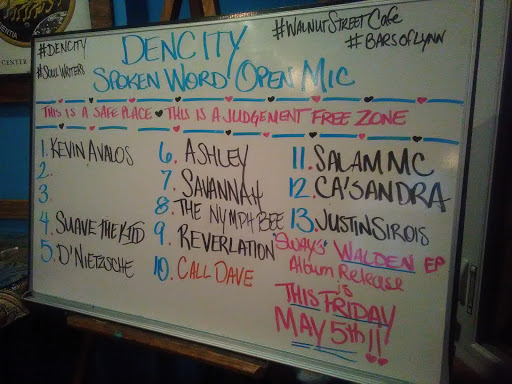 CENTER
#DENCITY
#SOUL WRITERS
DENCITY
SPOKEN WORD OPEN MIC
#WALNUTSTREETCAFE
#BARSOFLYNN
THIS IS A SAFE PLACE ♥ THIS IS A JUDGEMENT FREE ZONE
1. KEVIN AVALOS
2.
3.
4. SUAVE THE KID
5. D'NIETZSCHE
6. ASHLEY
7. SAVANNAH
8. THE NYMPH BEE
9. REVERLATION
10. CALL DAVE
11. SALAM MC
12. CA'SANDRA
13. JUSTIN SIROIS
9WAYS' WALDEN EP
Album Release
is
THIS FRIDAY
MAY 5th!!